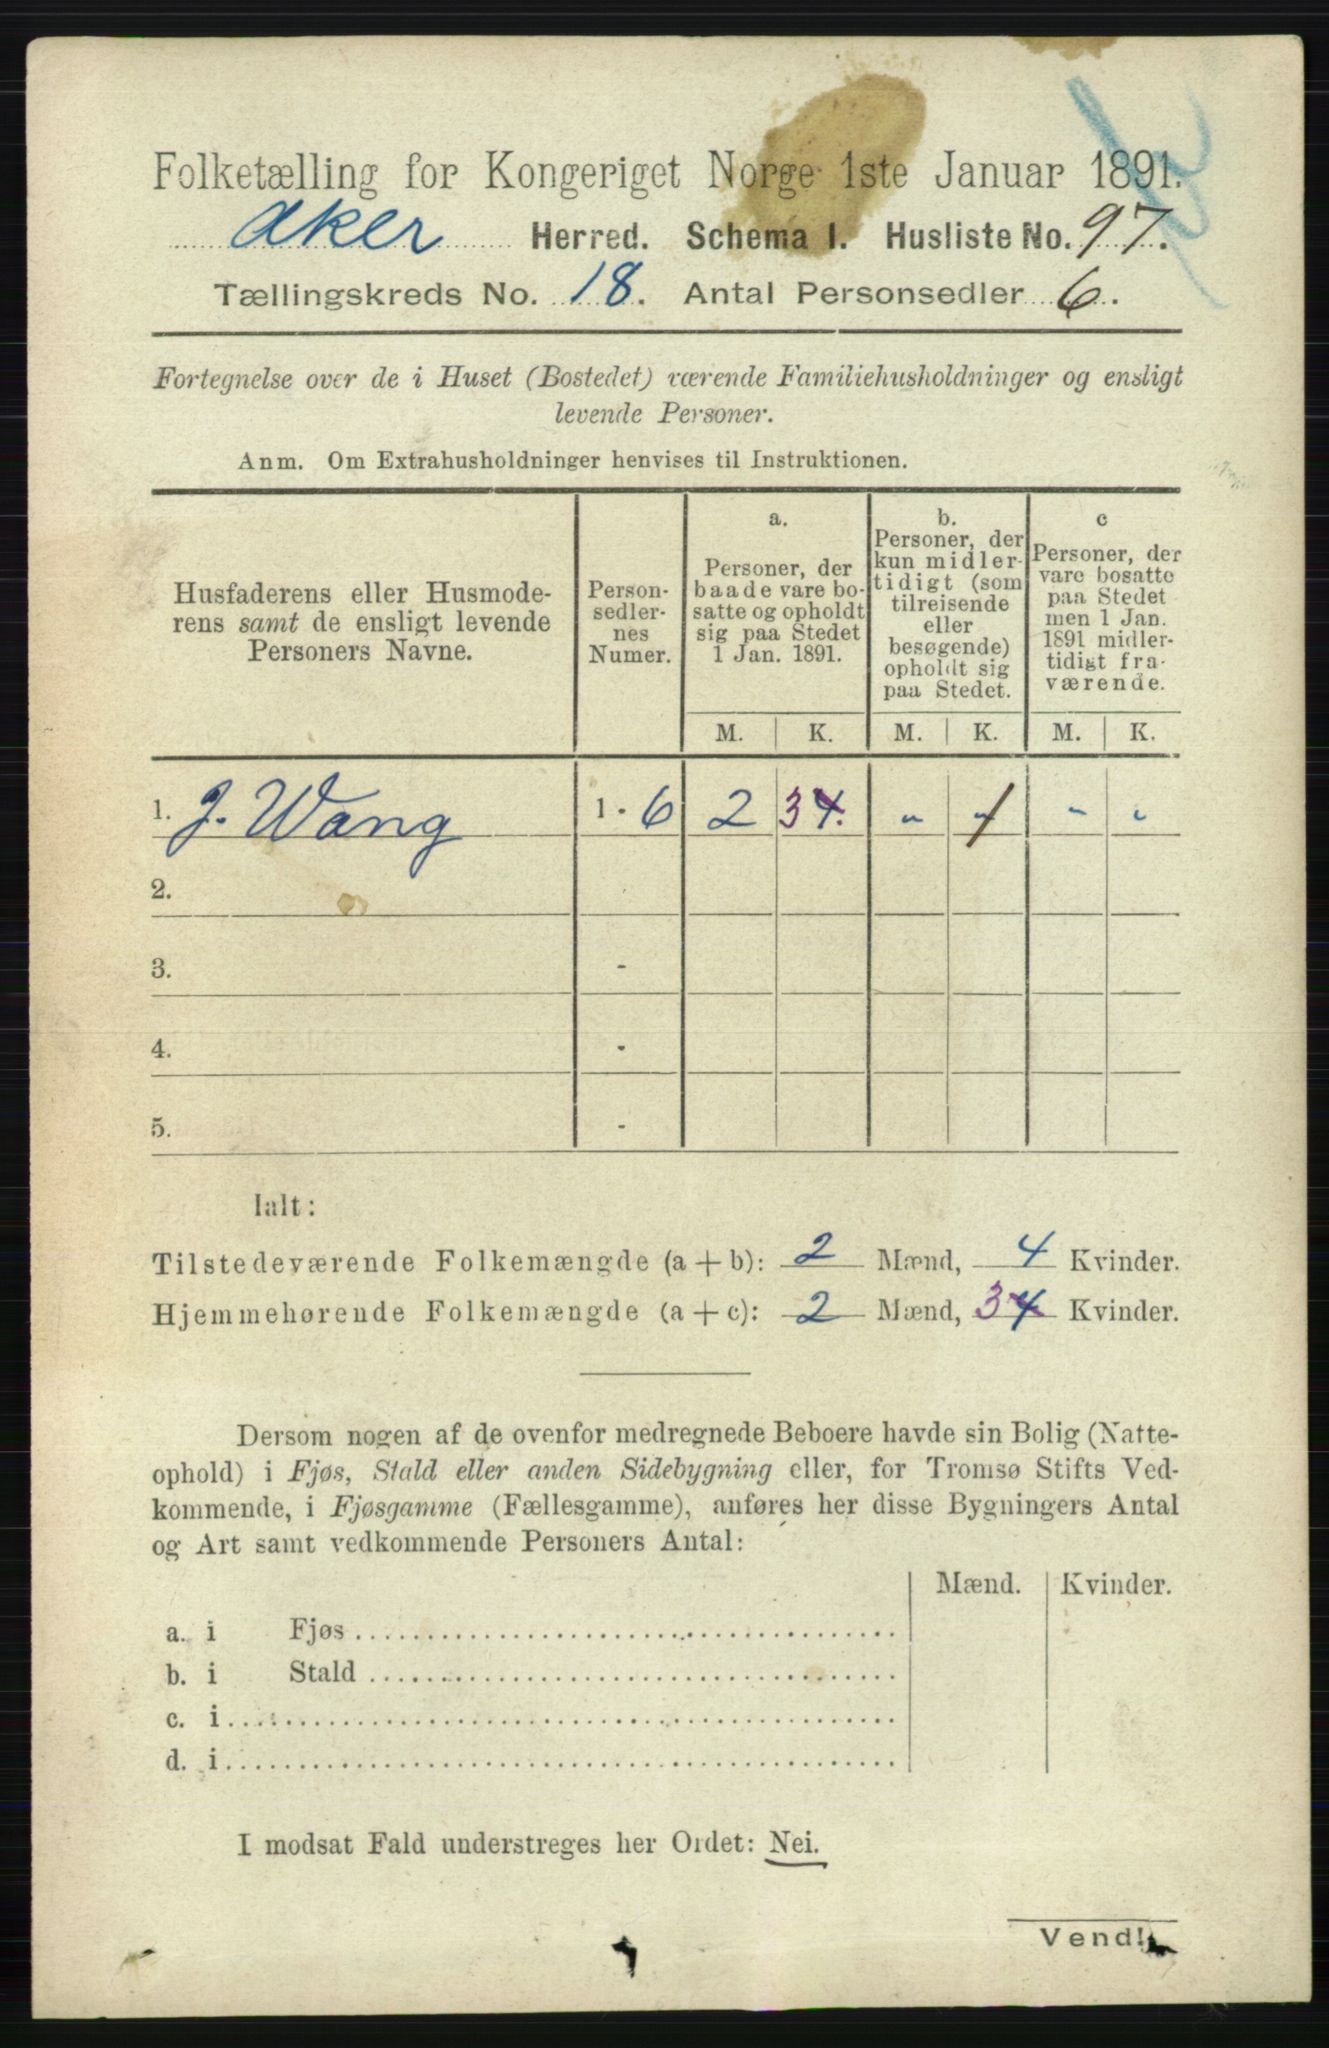 Folketælling for Kongeriget Norge 1ste Januar 1891.
Aker Herred. Schema I. Husliste No. 97.
Tællingskreds No. 18. Antal Personsedler 6.
Fortegnelse over de i Huset (Bostedet) værende Familiehusholdninger og ensligt
levende Personer.
Anm. Om Extrahusholdninger henvises til Instruktionen.
Husfaderens eller Husmode-
rens samt de ensligt levende
Personers Navne.
Person-
sedler-
nes
Numer.
a.
Personer, der
baade vare bo-
satte og opholdt
sig paa Stedet
1 Jan. 1891.
b.
Personer, der
kun midler-
tidigt (som
tilreisende
eller
besøgende)
opholdt sig
paa Stedet.
c
Personer, der
vare bosatte
paa Stedet
men 1 Jan.
1891 midler-
tidigt fra-
værende.
M. K. M. K. M. K.
1. J. Wang 1 - 6 2 3 4. - 1 - -
2.
3. -
4. -
5. -
Ialt:
Tilstedeværende Folkemængde (a + b): 2 Mænd, 4 Kvinder.
Hjemmehørende Folkemængde (a + c): 2 Mænd, 3 4 Kvinder.
Dersom nogen af de ovenfor medregnede Beboere havde sin Bolig (Natte-
ophold) i Fjøs, Stald eller anden Sidebygning eller, for Tromsø Stifts Ved-
kommende, i Fjøsgamme (Fællesgamme), anføres her disse Bygningers Antal
og Art samt vedkommende Personers Antal:
Mænd. Kvinder.
a. i Fjøs
b. i Stald
c. i
d. i
I modsat Fald understreges her Ordet: Nei.
Vend!